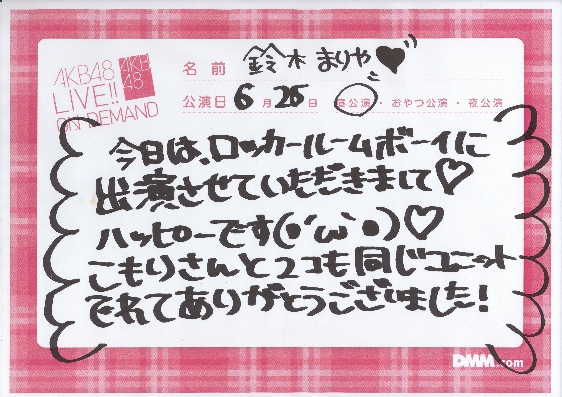 AKB48
LIVE!!
ON DEMAND
AKB
48
名前 鈴木まりや♥
公演日 6月26日 昼公演・おやつ公演・夜公演
今日は、ロッカールームボーイに
出演させていただきまして♡
ハッピーです(●´ω`●)♡
こもりさんと2コも同じユニット
でれてありがとうございました!
DMM.com